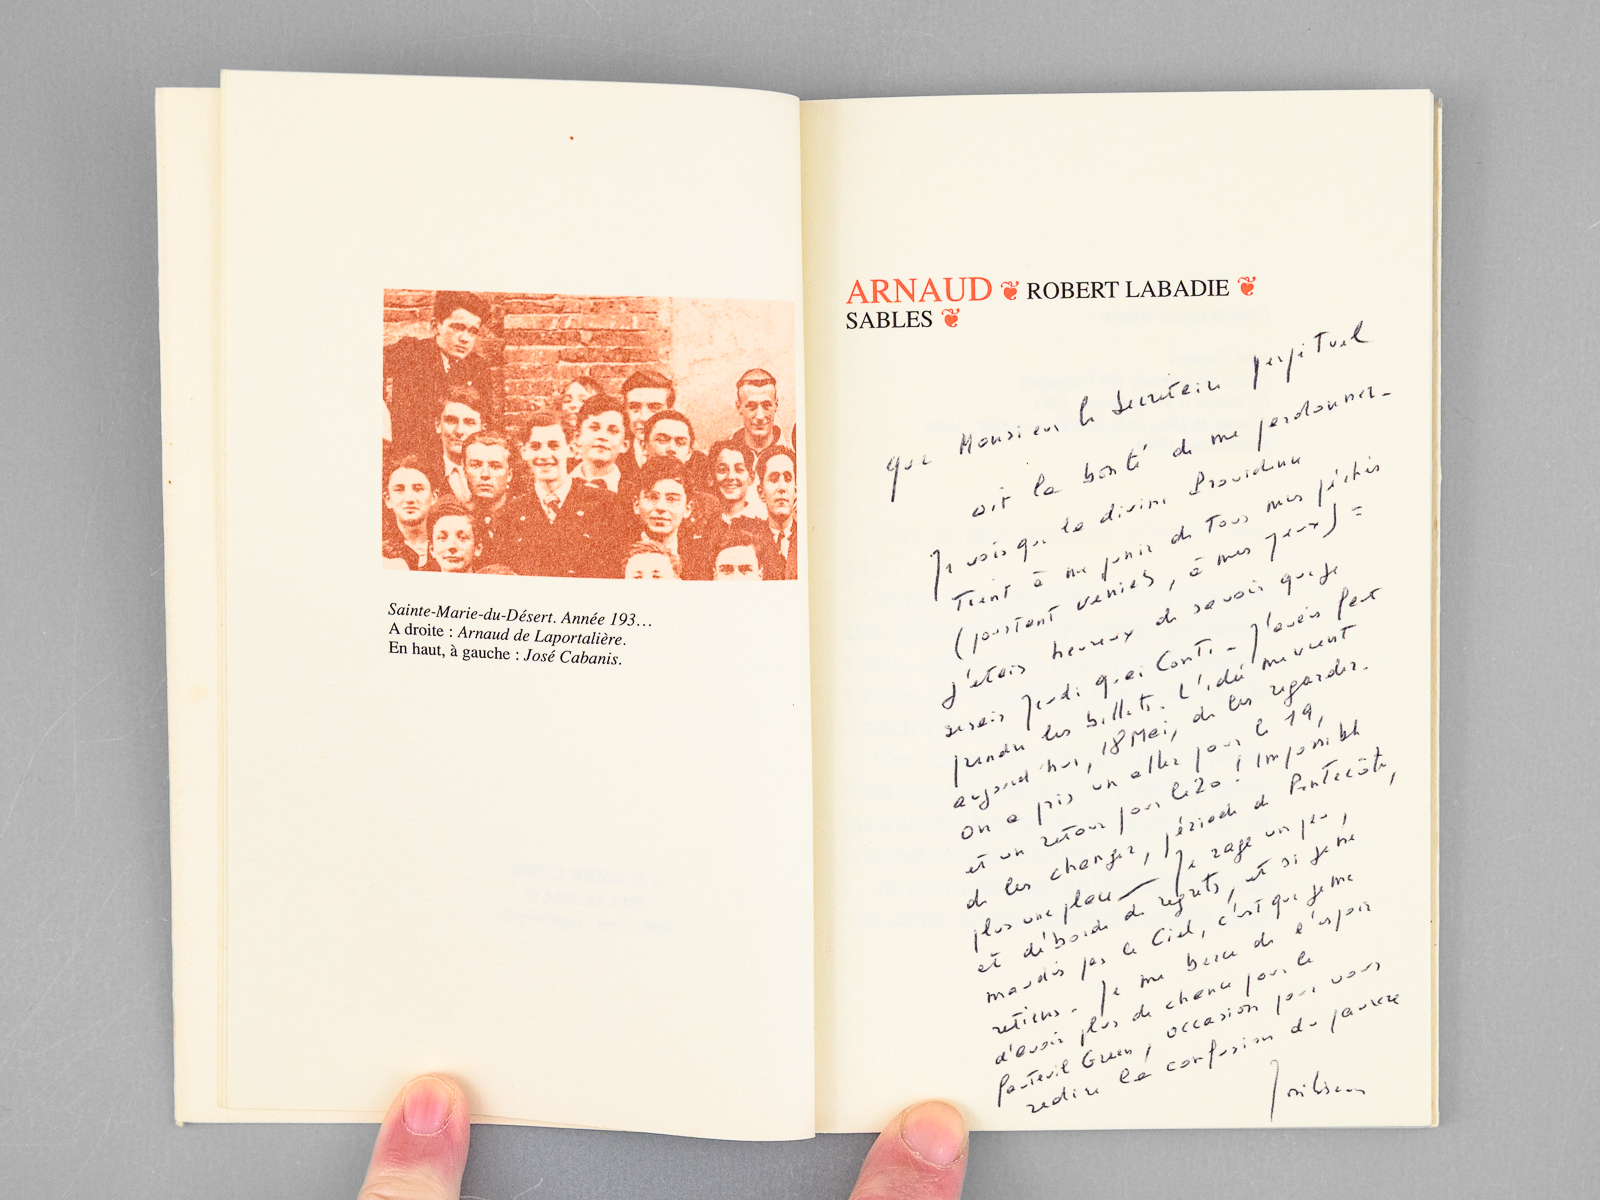 Sainte-Marie-du-Désert. Année 193…
A droite : Arnaud de Laportalière.
En haut, à gauche : José Cabanis.
ARNAUD ❦ ROBERT LABADIE ❦
SABLES ❦
que Monsieur le Secrétaire perpétuel
ait la bonté de me pardonner.
Je vois que la divine Providence
tient à me punir de tous mes péchés
(pourtant véniels, à mes yeux) =
j'étais heureux de savoir que je
serais jeudi quai Conti. J'avais fait
prendre les billets. L'idée me vient
aujourd'hui, 18 Mai, de les regarder.
On a pris un aller pour le 19,
et un retour pour le 20 ! Impossible
de les changer, période de Pentecôte,
plus une place — Je rage un peu,
et déborde de regrets, et si je ne
maudis pas le Ciel, c'est que je me
retiens. Je me berce de l'espoir
d'avoir plus de chance pour le
fauteuil Green, occasion pour vous
redire la confusion du pauvre